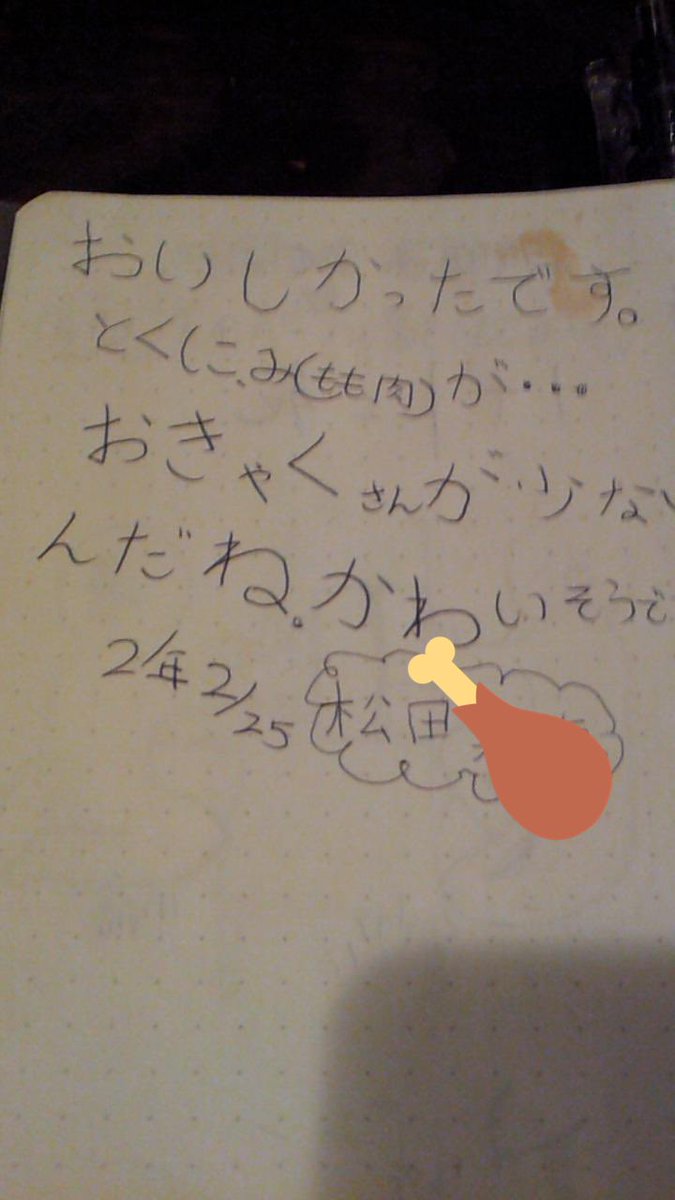 おいしかったです。
とくに、み(もも肉)が・・・
おきゃくさんが少ない
んだね。かわいそうで
2年2/25 松田